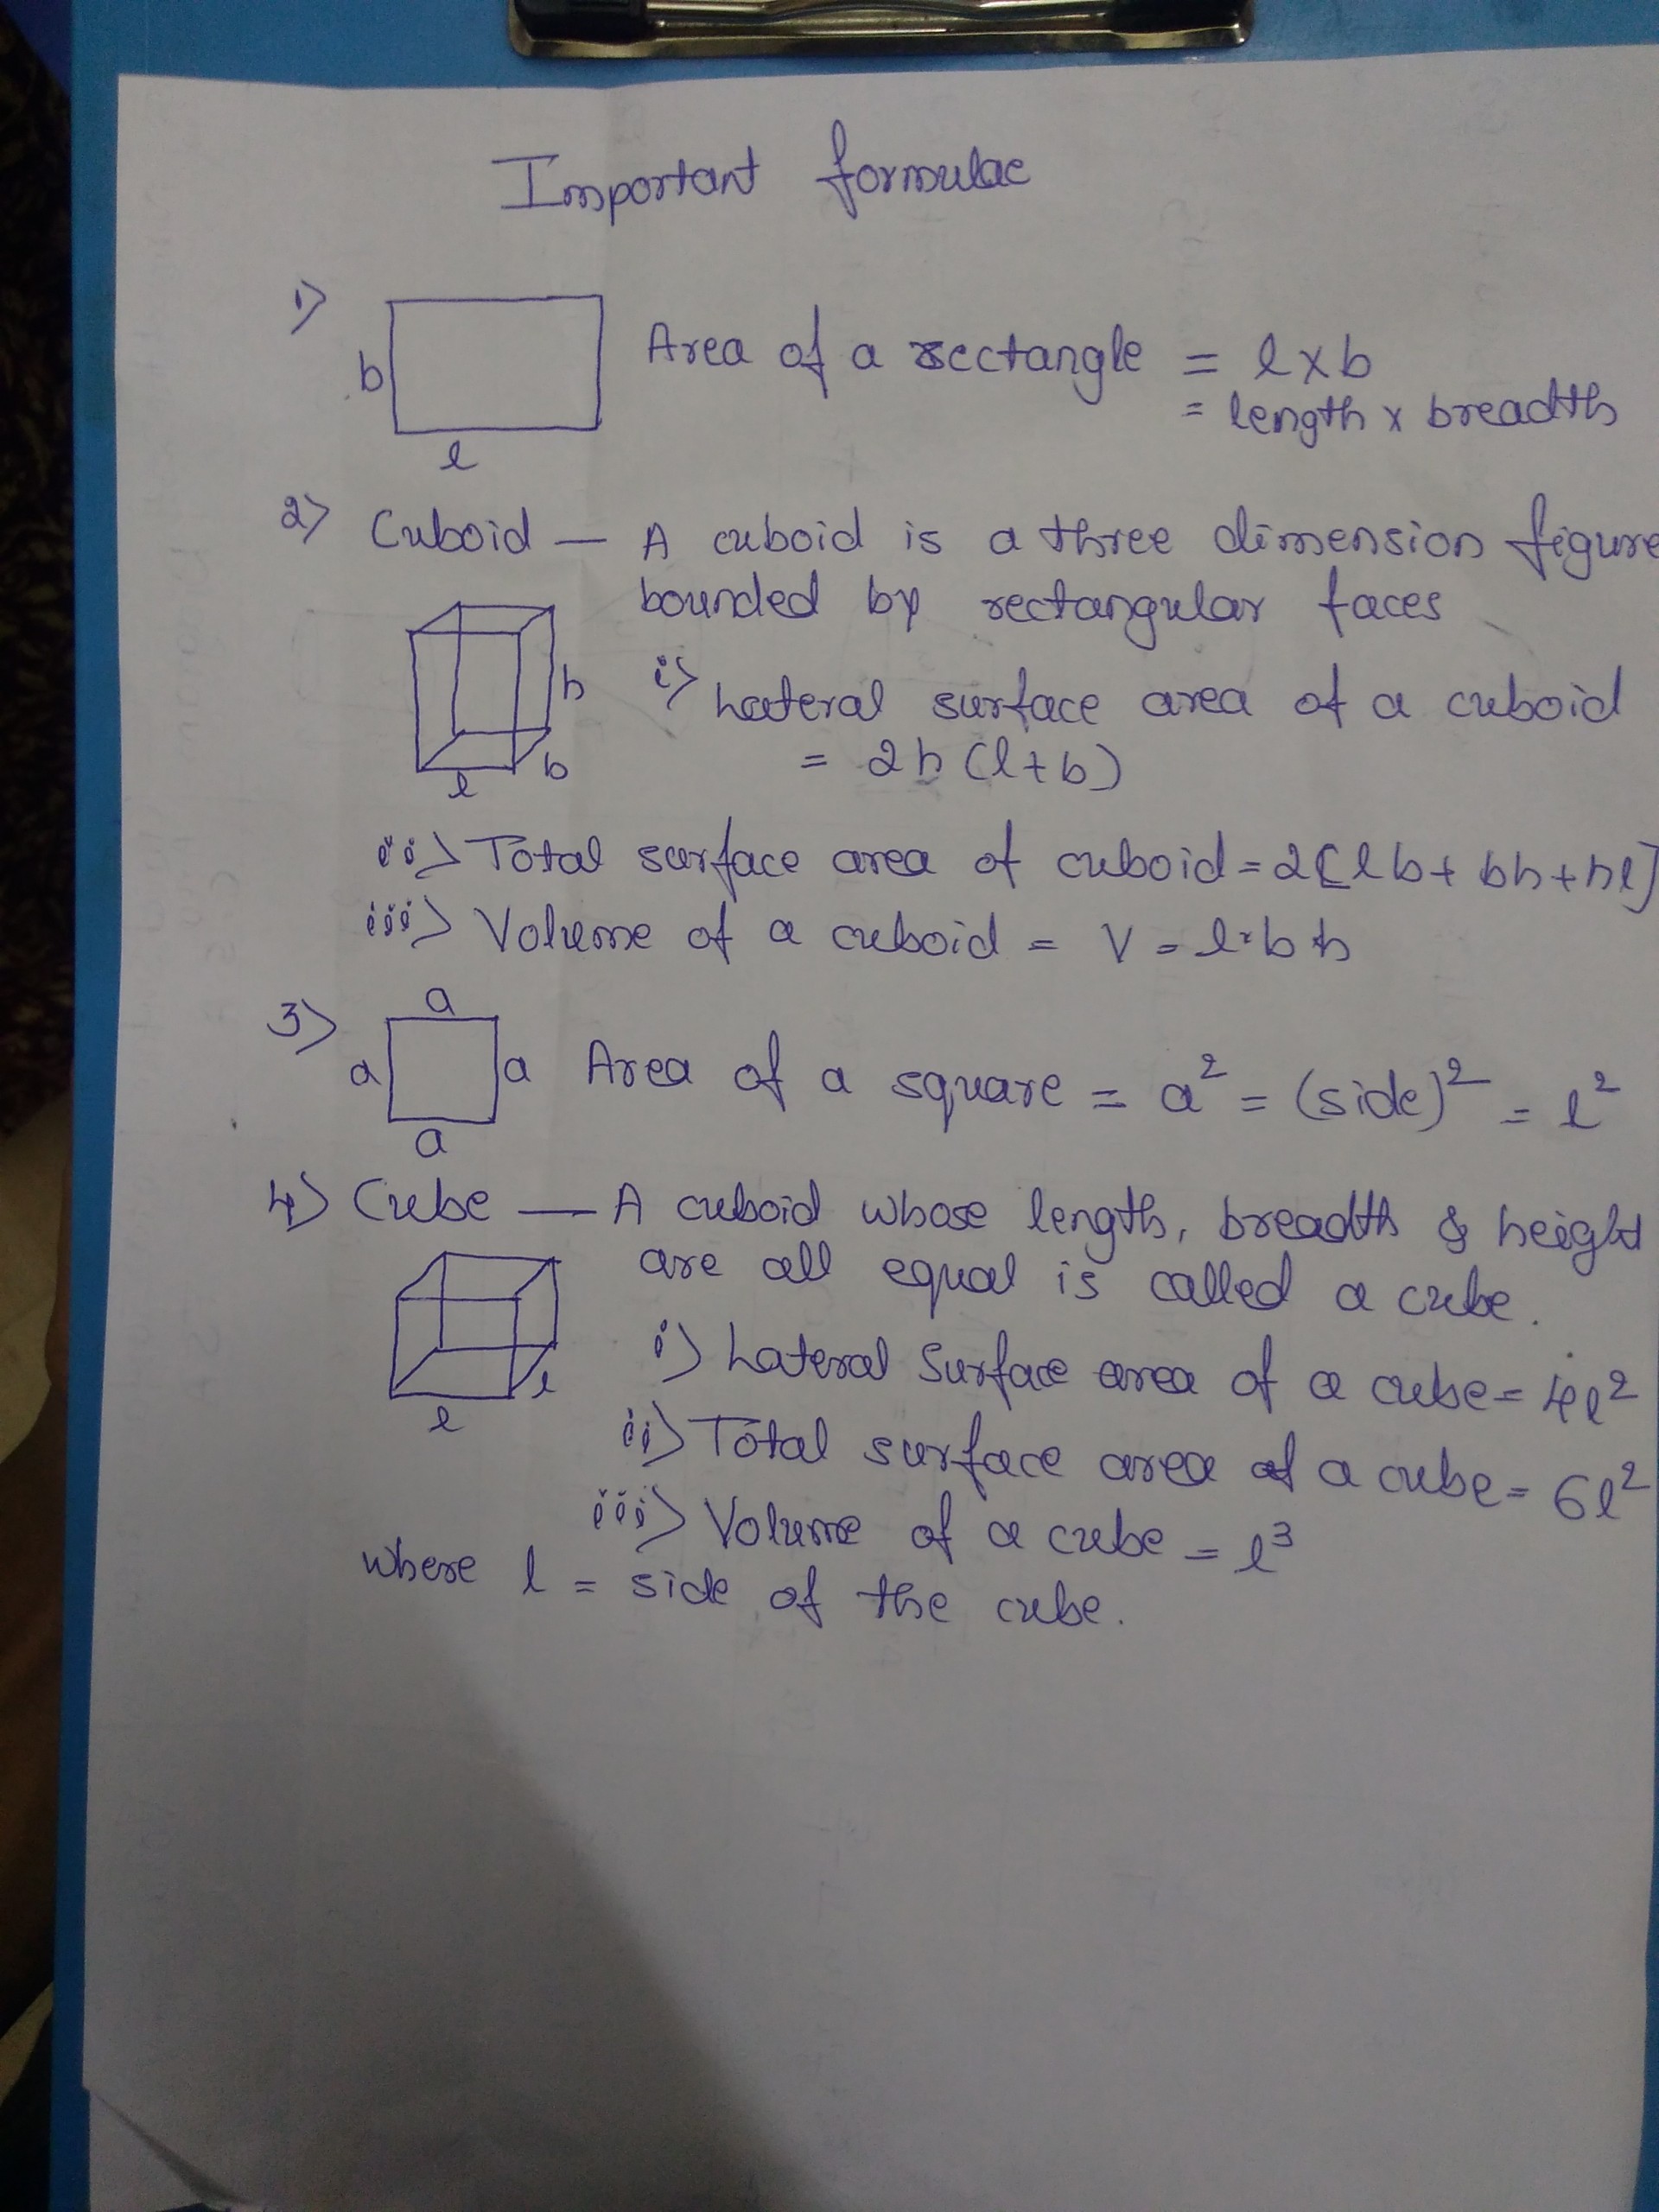 Important formulae
1)
b
l
Area of a rectangle = l x b
= length x breadth
2) Cuboid — A cuboid is a three dimension figure
bounded by rectangular faces
h
b
l
i) Lateral surface area of a cuboid
= 2h (l+b)
ii) Total surface area of cuboid = 2[lb + bh + hl]
iii) Volume of a cuboid = V = l·b h
3)
a
a
a
a
Area of a square = a² = (side)² = l²
4) Cube — A cuboid whose length, breadth & height
are all equal is called a cube.
l
l
i) Lateral Surface area of a cube = 4l²
ii) Total surface area of a cube = 6l²
iii) Volume of a cube = l³
where l = side of the cube.